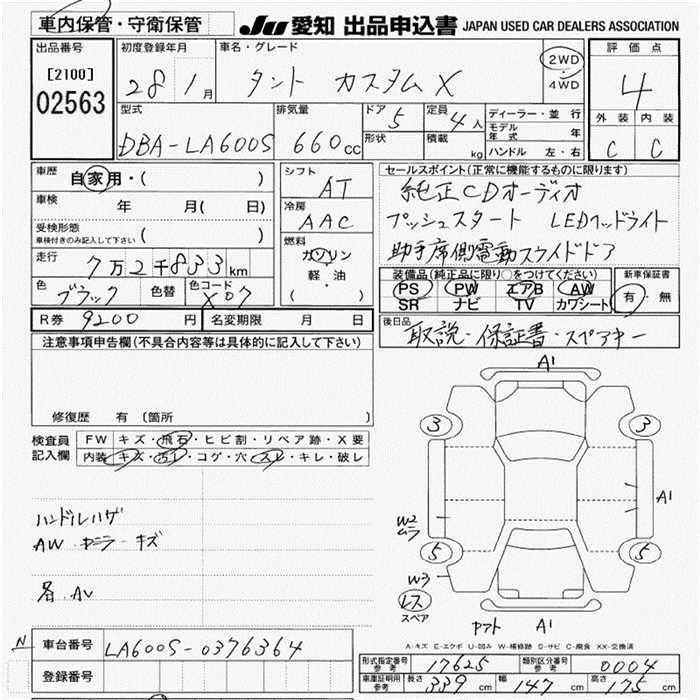 車内保管・守衛保管
JU 愛知 出品申込書 JAPAN USED CAR DEALERS ASSOCIATION
出品番号
[2100]
02563
初度登録年月
28 1月
車名・グレード
タント カスタムX
2WD
・
4WD
評価点
4
外装 内装
C C
型式
DBA-LA600S
排気量
660cc
ドア 5
形状
定員 4人
積載 kg
ディーラー・並行
モデル年式 年
ハンドル 左・右
車歴 自家用・( )
車検 年 月( 日)
受検形態
車検付きのみ記入して下さい ( )
走行 7万2千833km
色 ブラック
色替
色コード X07
シフト
AT
冷房
AAC
燃料
ガソリン
軽・油
( )
セールスポイント(正常に機能するものに限ります)
純正CDオーディオ
プッシュスタート LEDヘッドライト
助手席側電動スライドドア
装備品(純正品に限り○をつけてください)
PS PW エアB AW
SR ナビ TV カワシート
新車保証書
有・無
R券 9200円
名変期限 月 日
後日品
取説・保証書・スペアキー
注意事項申告欄(不具合内容等は具体的に記入して下さい)
修復歴 有 〔箇所
検査員
記入欄
FW キズ・飛石・ヒビ割・リペア跡・X要
内装 キズ・汚れ・コゲ・穴・スレ・キレ・破レ
ハンドルハゲ
AW キズ
各 AU
A1
3 3
A1
W2
ムラ
5 5
W3
レス
スペア
ヤフト A1
A-キズ E-エクボ U-凹み W-補修跡 S-サビ C-腐食 XX-交換済
N
車台番号 LA600S-0376364
登録番号
形式指定番号
参考
17625
類別区分番号
参考
0004
車庫証明用
参考
長さ 339cm 幅 147cm 高さ 175cm